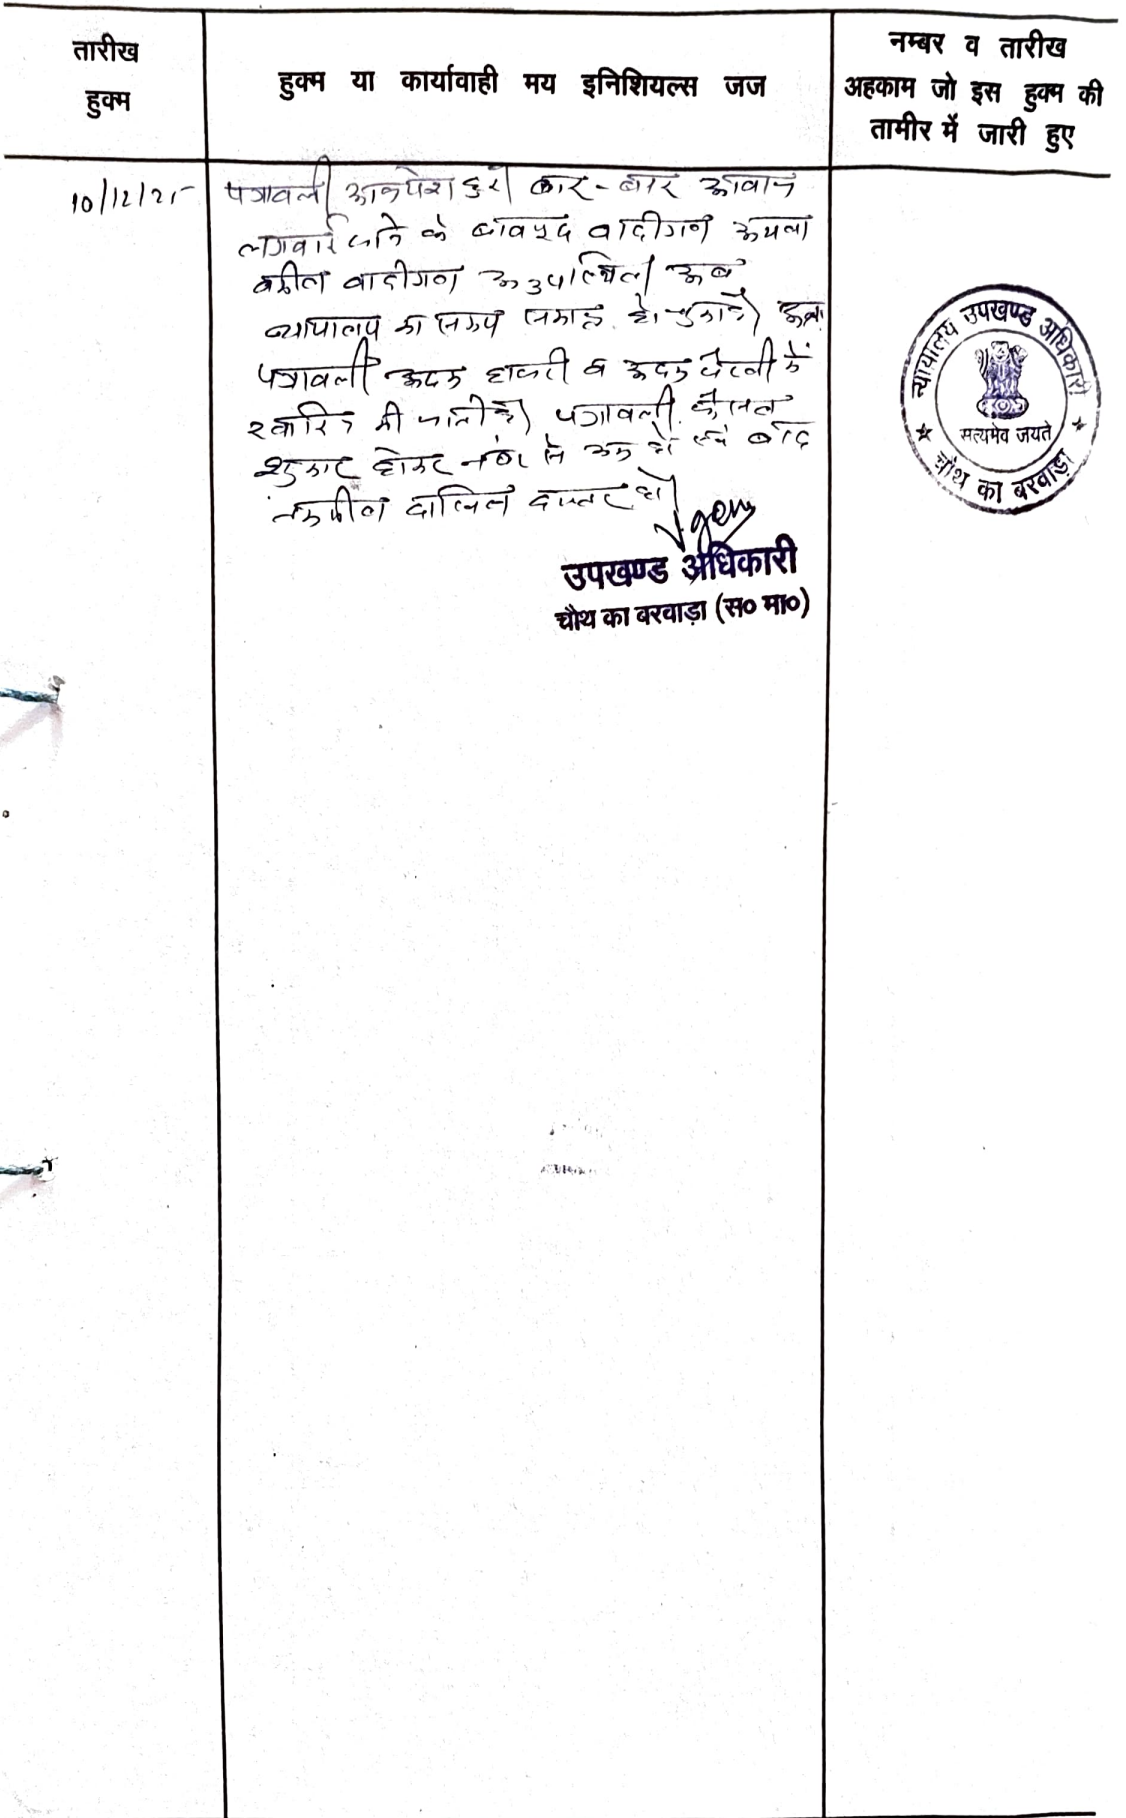 तारीख
हुक्म
हुक्म या कार्यावाही मय इनिशियल्स जज
नम्बर व तारीख
अहकाम जो इस हुक्म की
तामीर में जारी हुए
10/12/25
पत्रावली आज पेश हुई। बार-बार आवाज
लगवाई जाने के बावजूद वादीगण अथवा
वकील वादीगण अनुपस्थित। अब
न्यायालय का समय समाप्त हो चुका है। अतः
पत्रावली अदम हाजरी व अदम पैरवी में
खारिज की जाती है। पत्रावली फैसल
शुमार होकर नंबर से कम हो एवं बाद
तकमील दाखिल दफ्तर हो।
उपखण्ड अधिकारी
चौथ का बरवाड़ा (स० मा०)
न्यायालय उपखण्ड अधिकारी
सत्यमेव जयते
चौथ का बरवाड़ा